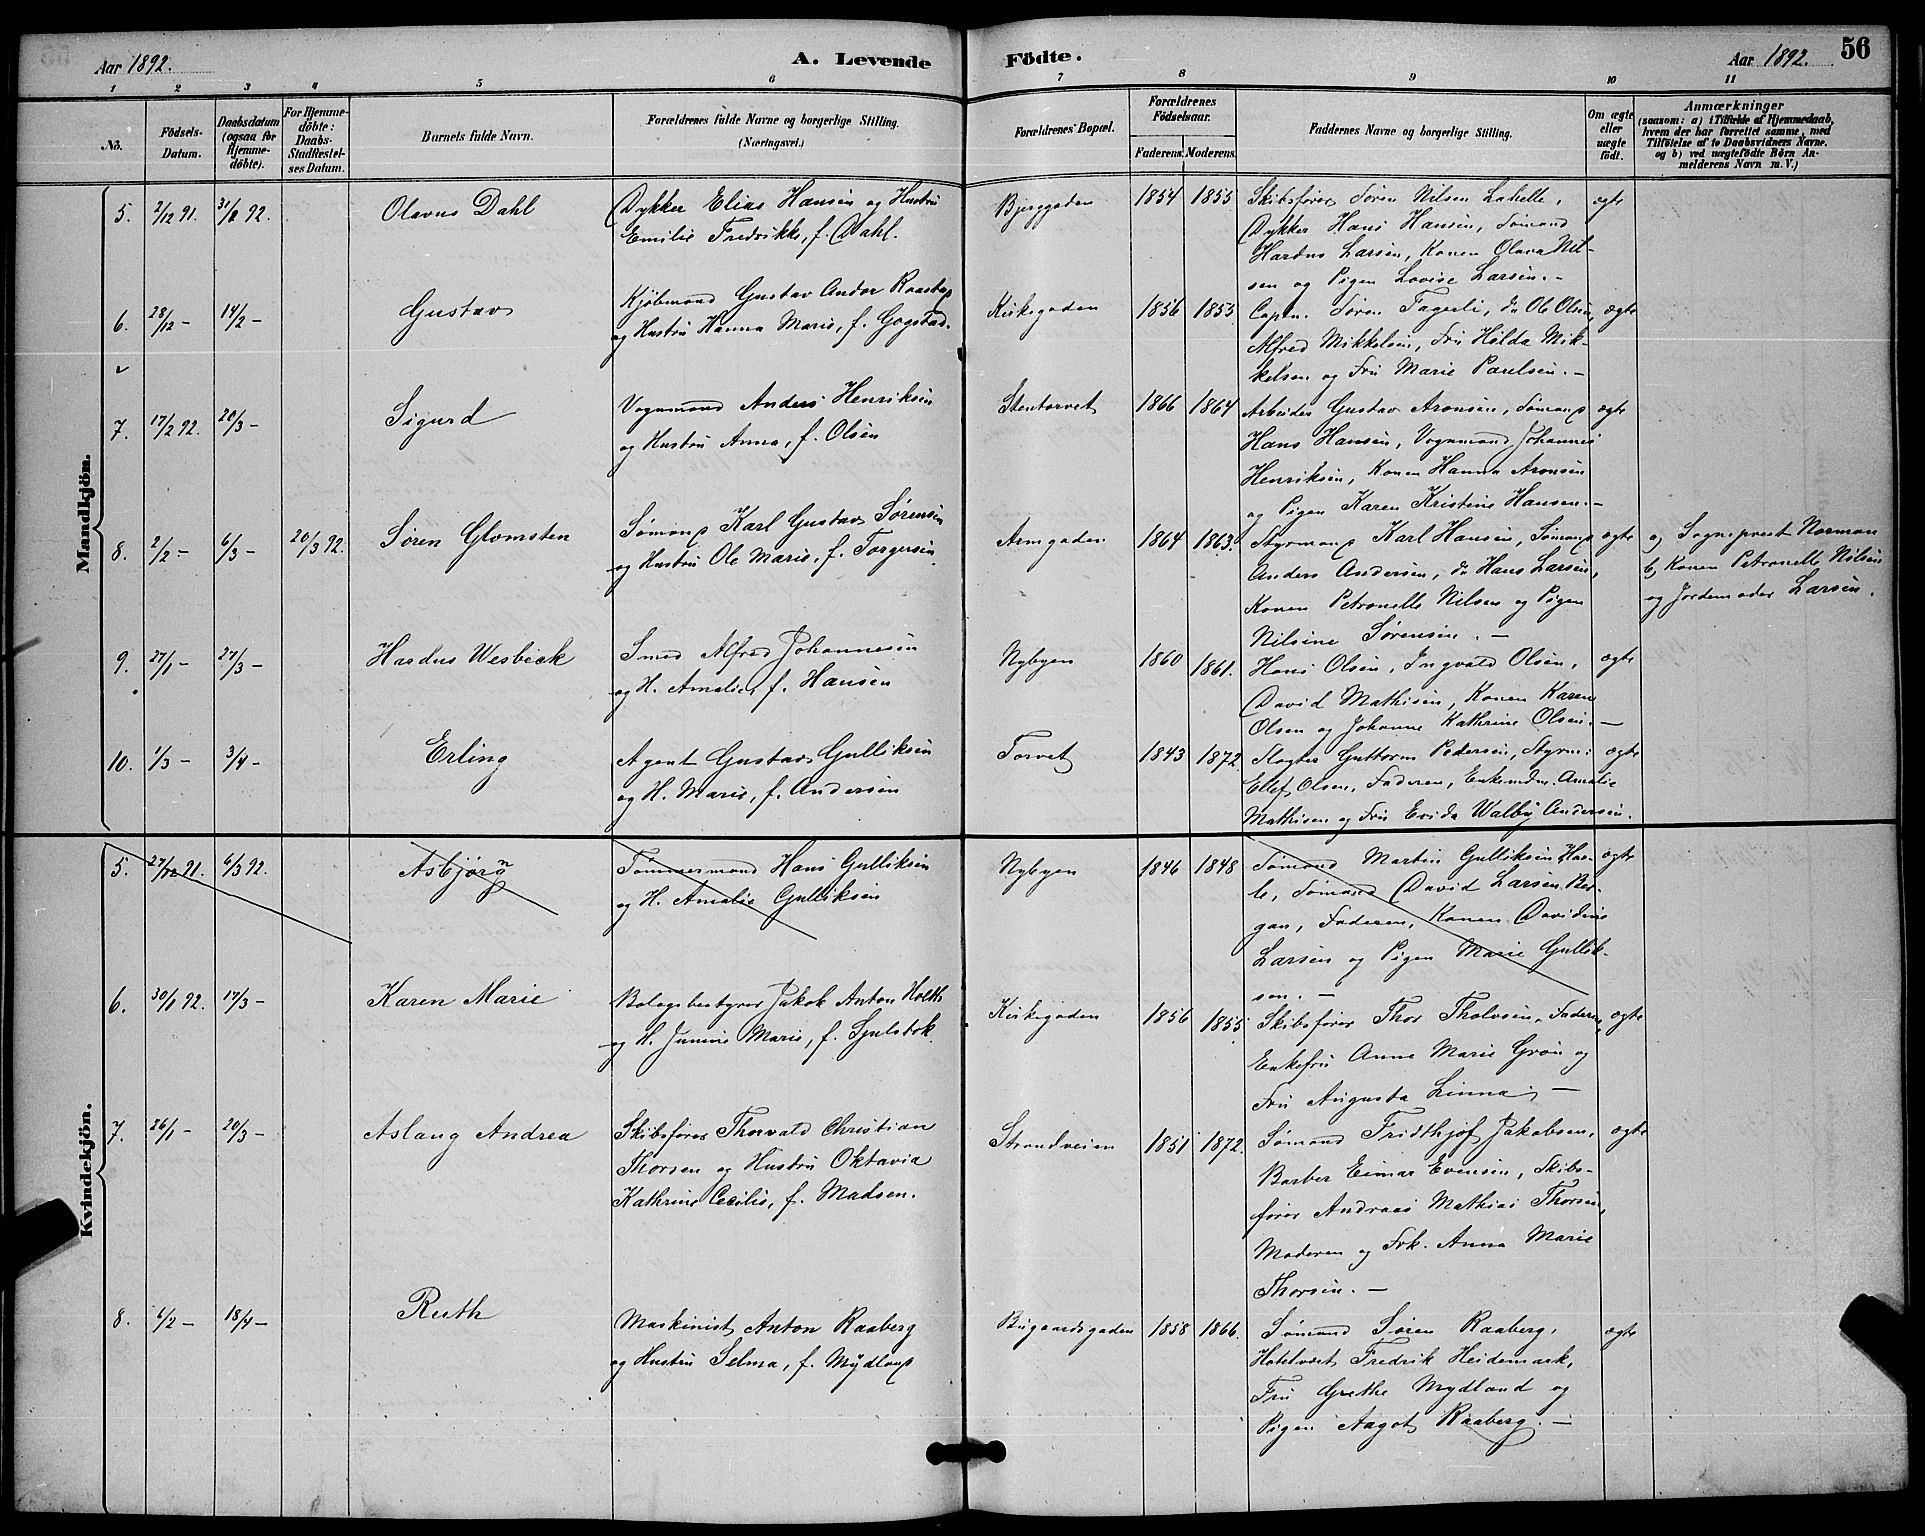 Aar 1892. A. Levende Födte. Aar 1892. 56
1 2 3 4 5 6 7 8 9 10 11
No. Födsels-Datum. Daabsdatum (ogsaa for Hjemme-döbte). For Hjemme-döbte: Daabs-Stadfæstel-ses Datum. Barnets fulde Navn. Forældrenes fulde Navne og borgerlige Stilling. (Næringsvei.) Forældrenes Bopæl. Forældrenes Födselsaar. Faderens. Moderens. Faddernes Navne og borgerlige Stilling. Om ægte eller uægte födt. Anmærkninger (saasom: a) i Tilfælde af Hjemmedaab, hvem der har forrettet samme, med Tilföielse af to Daabsvidners Navne, og b) ved uægtefödte Börn Anmelderens Navn m. V.)
Mandkjön.
5. 2/12 91. 31/1 92. Olavus Dahl Dykker Elias Hansen og Hustru Bjerggaden 1854 1855 Skibsfører Søren Nilsen Lahelle, ægte
Emilie Fredrikke, f. Dahl. Dykker Hans Hansen, Sømand
Hardus Larsen, Konen Olava Nil-
sen og Pigen Lovise Larsen.-
6. 28/12 - 14/2 - Gustav Kjøbmand Gustav Andor Raastad Kirkegaden 1856 1853 Captn. Søren Fagerli, do Ole Olsen, ægte
og Hustru Hanna Marie, f. Gogstad. Alfred Mikkelsen, Fru Hilda Mik-
kelsen og Fru Marie Paulsen.-
7. 17/2 92. 20/3 - Sigurd Vognmand Anders Henriksen Stentorvet 1866 1864 Arbeider Gustav Aronsen, Sømand ægte
og Hustru Anna, f. Olsen Hans Hansen, Vognmand Johannes
Henriksen, Konen Hanna Aronsen
og Pigen Karen Kristine Hansen.-
8. 2/2 - 6/3 - 20/3 92. Søren Glomsten Sømand Karl Gustav Sørensen Armgaden 1864 1863. Styrmand Karl Hansen, Sømand ægte a, Sogneprest Norman
og Hustru Ole Marie, f. Torgersen. Anders Andersen, do Hans Larsen, b, Konen Petronelle Nilsen
Konen Petronelle Nilsen og Pigen og Jordemoder Larsen.
Nilsine Sørensen.-
9. 27/1 - 27/3 - Hardus Wesbeck Smed Alfred Johannesen Nybyen 1860 1861. Hans Olsen, Ingvald Olsen, ægte
og H. Amalie, f. Hansen David Mathisen, Konen Karen
Olsen og Johanne Kathrine Olsen.-
10. 1/3 - 3/4 - Erling Agent Gustav Gulliksen Torvet 1843 1872 Slagter Guttorm Pedersen, Styrm: ægte
og H. Marie, f. Andersen Ellef Olsen, Faderen, Enkemdm. Amalie
Mathisen og Fru Evida Walby Andersen.
Kvindekjön.
5. 27/12 91. 6/3 92. Asbjørn Tømmermand Hans Gulliksen Nybyen 1846 1848 Sømand Martin Gulliksen Has- ægte
og H. Amalie Gulliksen le, Sømand David Larsen Ber-
gan, Faderen, Konen Davidine
Larsen og Pigen Marie Gullik-
sen.-
6. 30/1 92. 17/3 - Karen Marie Bolagsbestyrer Jakob Anton Holth Kirkegaden 1856 1855 Skibsfører Thor Tholvsen, Faderen, ægte
og H. Junine Marie, f. Gulsbok. Enkefru Anne Marie Grøn og
Fru Augusta Linna.-
7. 26/1 - 20/3 - Aslaug Andrea Skibsfører Thorvald Christian Strandveien 1851 1872. Sømand Fridthjof Jakobsen, ægte
Thorsen og Hustru Oktavia Barber Eimar Evensen, Skibs-
Kathrine Cecilie, f. Madsen. fører Andreas Mathias Thorsen,
Moderen og Frk. Anna Marie
Thorsen.-
8. 6/2 - 18/4 - Ruth Maskinist Anton Raaberg Bugaardsgaden 1858 1866. Sømand Søren Raaberg, ægte
og Hustru Selma, f. Mydland Hotelvært Fredrik Heidemark,
Fru Grethe Mydland og
Pigen Aagot Raaberg.-